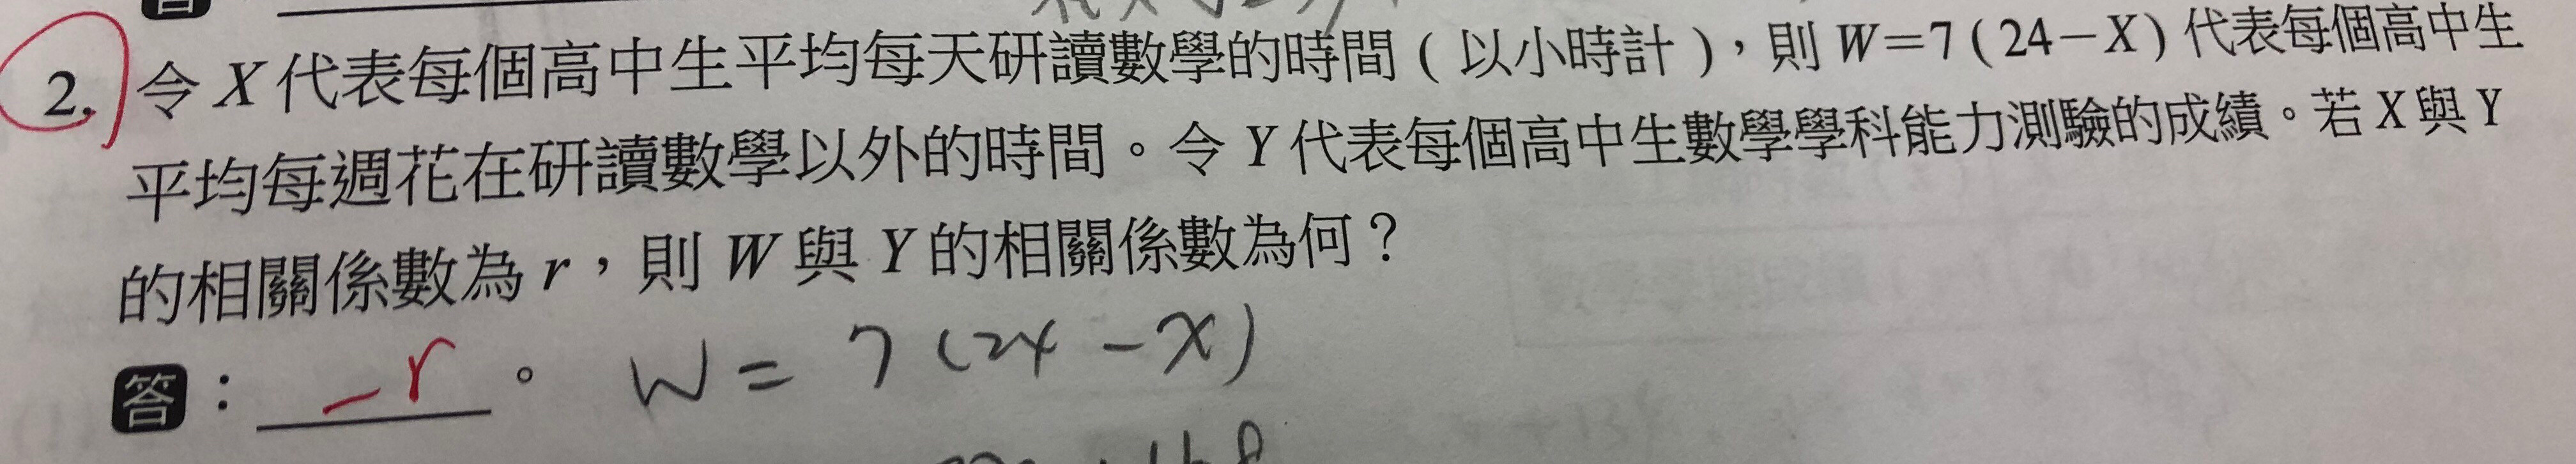 2. 令 X 代表每個高中生平均每天研讀數學的時間（以小時計），則 W=7(24-X) 代表每個高中生
平均每週花在研讀數學以外的時間。令 Y 代表每個高中生數學學科能力測驗的成績。若 X 與 Y
的相關係數為 r，則 W 與 Y 的相關係數為何？
答：-r。 W = 7(24-x)